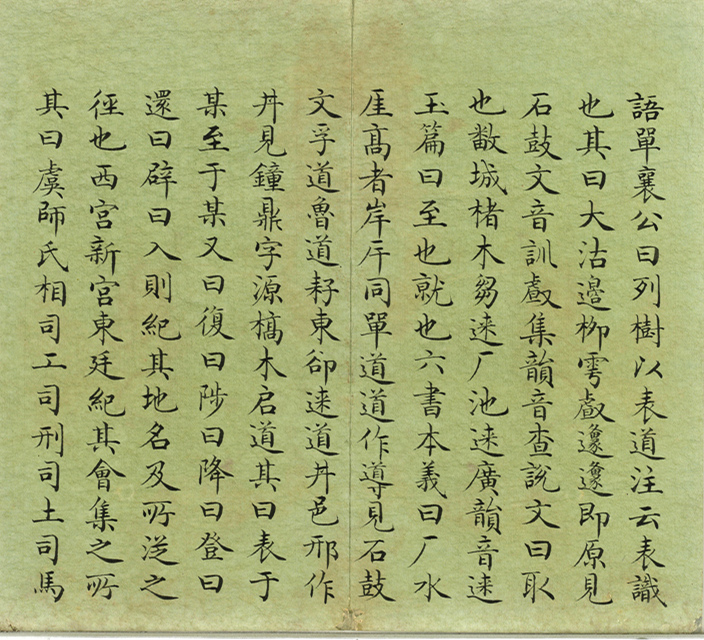 語單襄公曰列樹以表道注云表識
也其曰大沽邊栁雩㪞邍邍即原見
石鼓文音訓㪞集韻音查說文曰㕝
也㪚城楮木芻逨厂池逨廣韻音逨
玉篇曰至也就也六書本義曰厂水
厓髙者岸厈同單道道作導見石鼓
文孚道魯道耔東卻逨道丼邑邢作
丼見鐘鼎字源槁木启道其曰表于
某至于某又曰復曰陟曰降曰登曰
還曰辟曰入則紀其地名及所從之
徑也西宮新宮東廷紀其會集之所
其曰虞師氏相司工司刑司土司馬